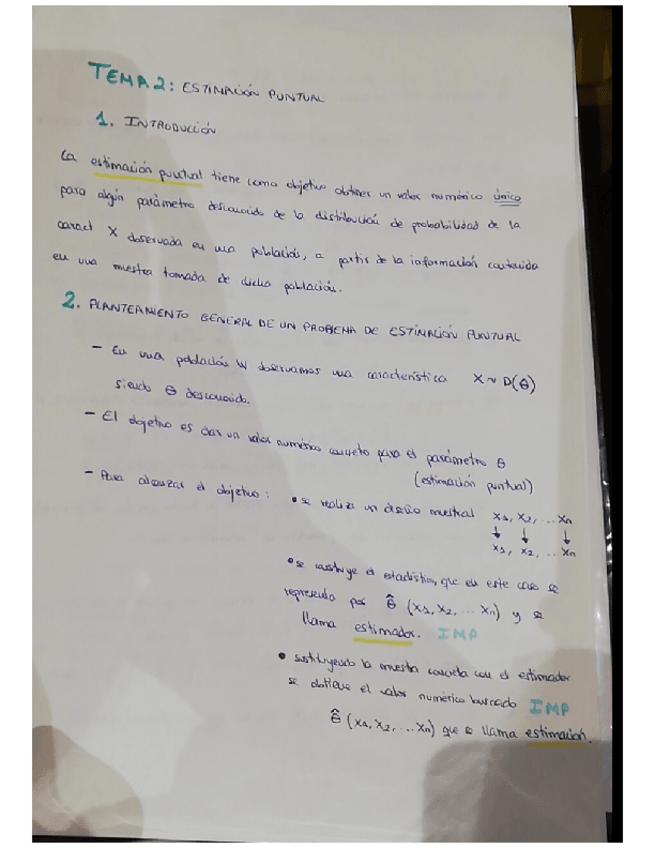 TEMA 2: ESTIMACIÓN PUNTUAL
1. INTRODUCCIÓN
La estimación puntual tiene como objetivo obtener un valor numérico único
para algún parámetro desconocido de la distribución de probabilidad de la
caract X observada en una población, a partir de la información contenida
en una muestra tomada de dicha población.
2. PLANTEAMIENTO GENERAL DE UN PROBLEMA DE ESTIMACIÓN PUNTUAL
- En una población W observamos una característica X ~ D(θ)
siendo θ desconocido.
- El objetivo es dar un valor numérico concreto para el parámetro θ
(estimación puntual)
- Para alcanzar el objetivo: • se realiza un diseño muestral X1, X2, ... Xn
↓ ↓ ↓
x1, x2, ... xn
• se construye el estadístico, que en este caso se
representa por θ̂ (x1, x2, ... xn) y se
llama estimador. IMP
• sustituyendo la muestra concreta con el estimador
se obtiene el valor numérico buscado IMP
θ̂ (x1, x2, ... xn) que se llama estimación.